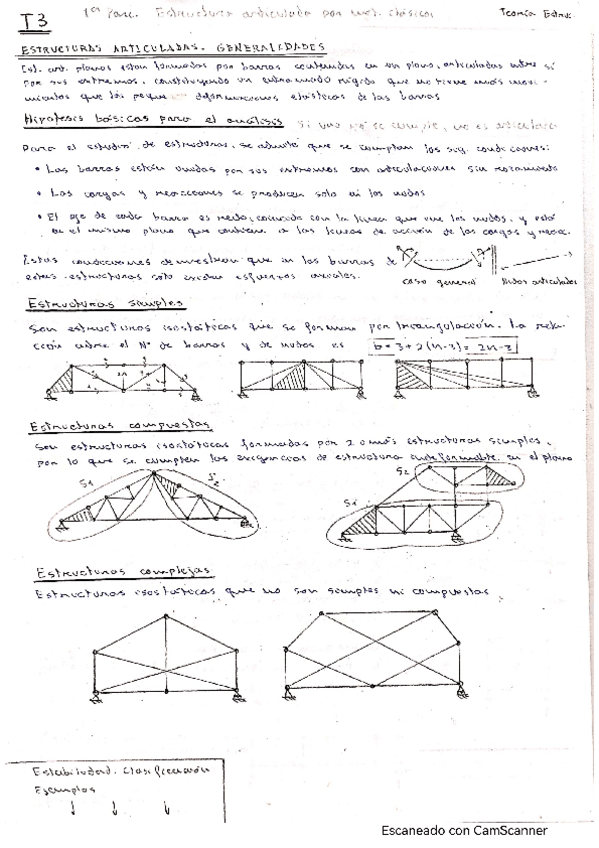 T3
1ª Parc. Estructura articulada por met. clásicos
Teoría Estruc.
ESTRUCTURAS ARTICULADAS. GENERALIDADES
Est. art. planas están formadas por barras contenidas en un plano, articuladas entre sí
por sus extremos, constituyendo un entramado rígido que no tiene más movi-
mientos que las peque deformaciones elásticas de las barras
Hipótesis básicas para el análisis Si uno no se cumple, no es articulada
Para el estudio de estructuras, se admite que se cumplan las sig. condiciones:
• Las barras están unidas por sus extremos con articulaciones sin rozamiento
• Las cargas y reacciones se producen solo en los nodos
• El eje de cada barra es recto, coincide con la línea que une los nudos, y está
en el mismo plano que contiene a las líneas de acción de las cargas y reacc.
Estas condiciones demuestran que en las barras de
estas estructuras solo existen esfuerzos axiales.
caso general
Nudos articulados
Estructuras simples
Son estructuras isostáticas que se forman por triangulación. La rela-
ción entre el Nº de barras y de nudos es b = 3 + 2(n-3) = 2n-3
Estructuras compuestas
Son estructuras isostáticas formadas por 2 o más estructuras simples,
por lo que se cumplen las exigencias de estructura indeformable en el plano
S1
S2
S2
S1
Estructuras complejas
Estructuras isostáticas que no son simples ni compuestas
Estabilidad. Clasificación
Ejemplos
Escaneado con CamScanner